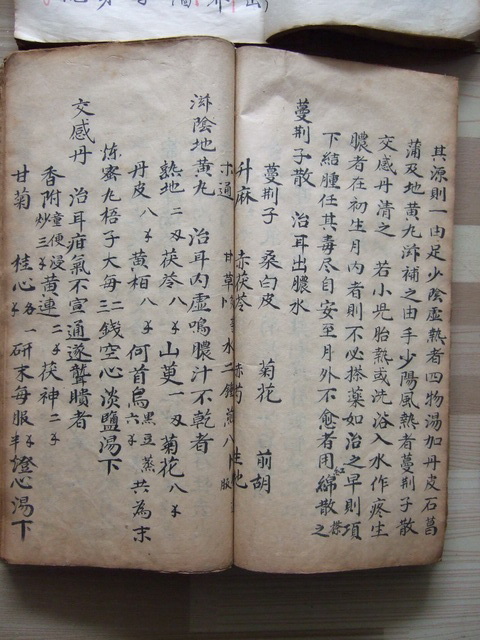 其源則一由足少陰虛熱者四物湯加丹皮石菖
蒲及地黃丸滋補之由手少陽風熱者蔓荆子散
交感丹清之 若小兒胎熱或洗浴入水作疼生
膿者在初生月內者則不必搽藥如治之早則項
下結腫任其毒尽自安至月外不愈者用紅綿散搽之
蔓荆子散 治耳出膿水
蔓荆子 桑白皮 菊花 前胡
升麻 赤茯苓 赤芍 生地
木通 甘草 水二鍾煎八 服
滋陰地黃丸 治耳內虛鳴膿汁不乾者
熟地二両 茯苓八㐅 山萸一両 菊花八㐅
丹皮八㐅 黃柏八㐅 何首烏黑豆蒸六㐅 共為末
炼蜜丸梧子大每三錢空心淡鹽湯下
交感丹 治耳疳氣不宣通遂聾聵者
香附童便浸炒三㐅 黃連二㐅 茯神二㐅
甘菊 桂心各一㐅 研末每服半㐅 燈心湯下